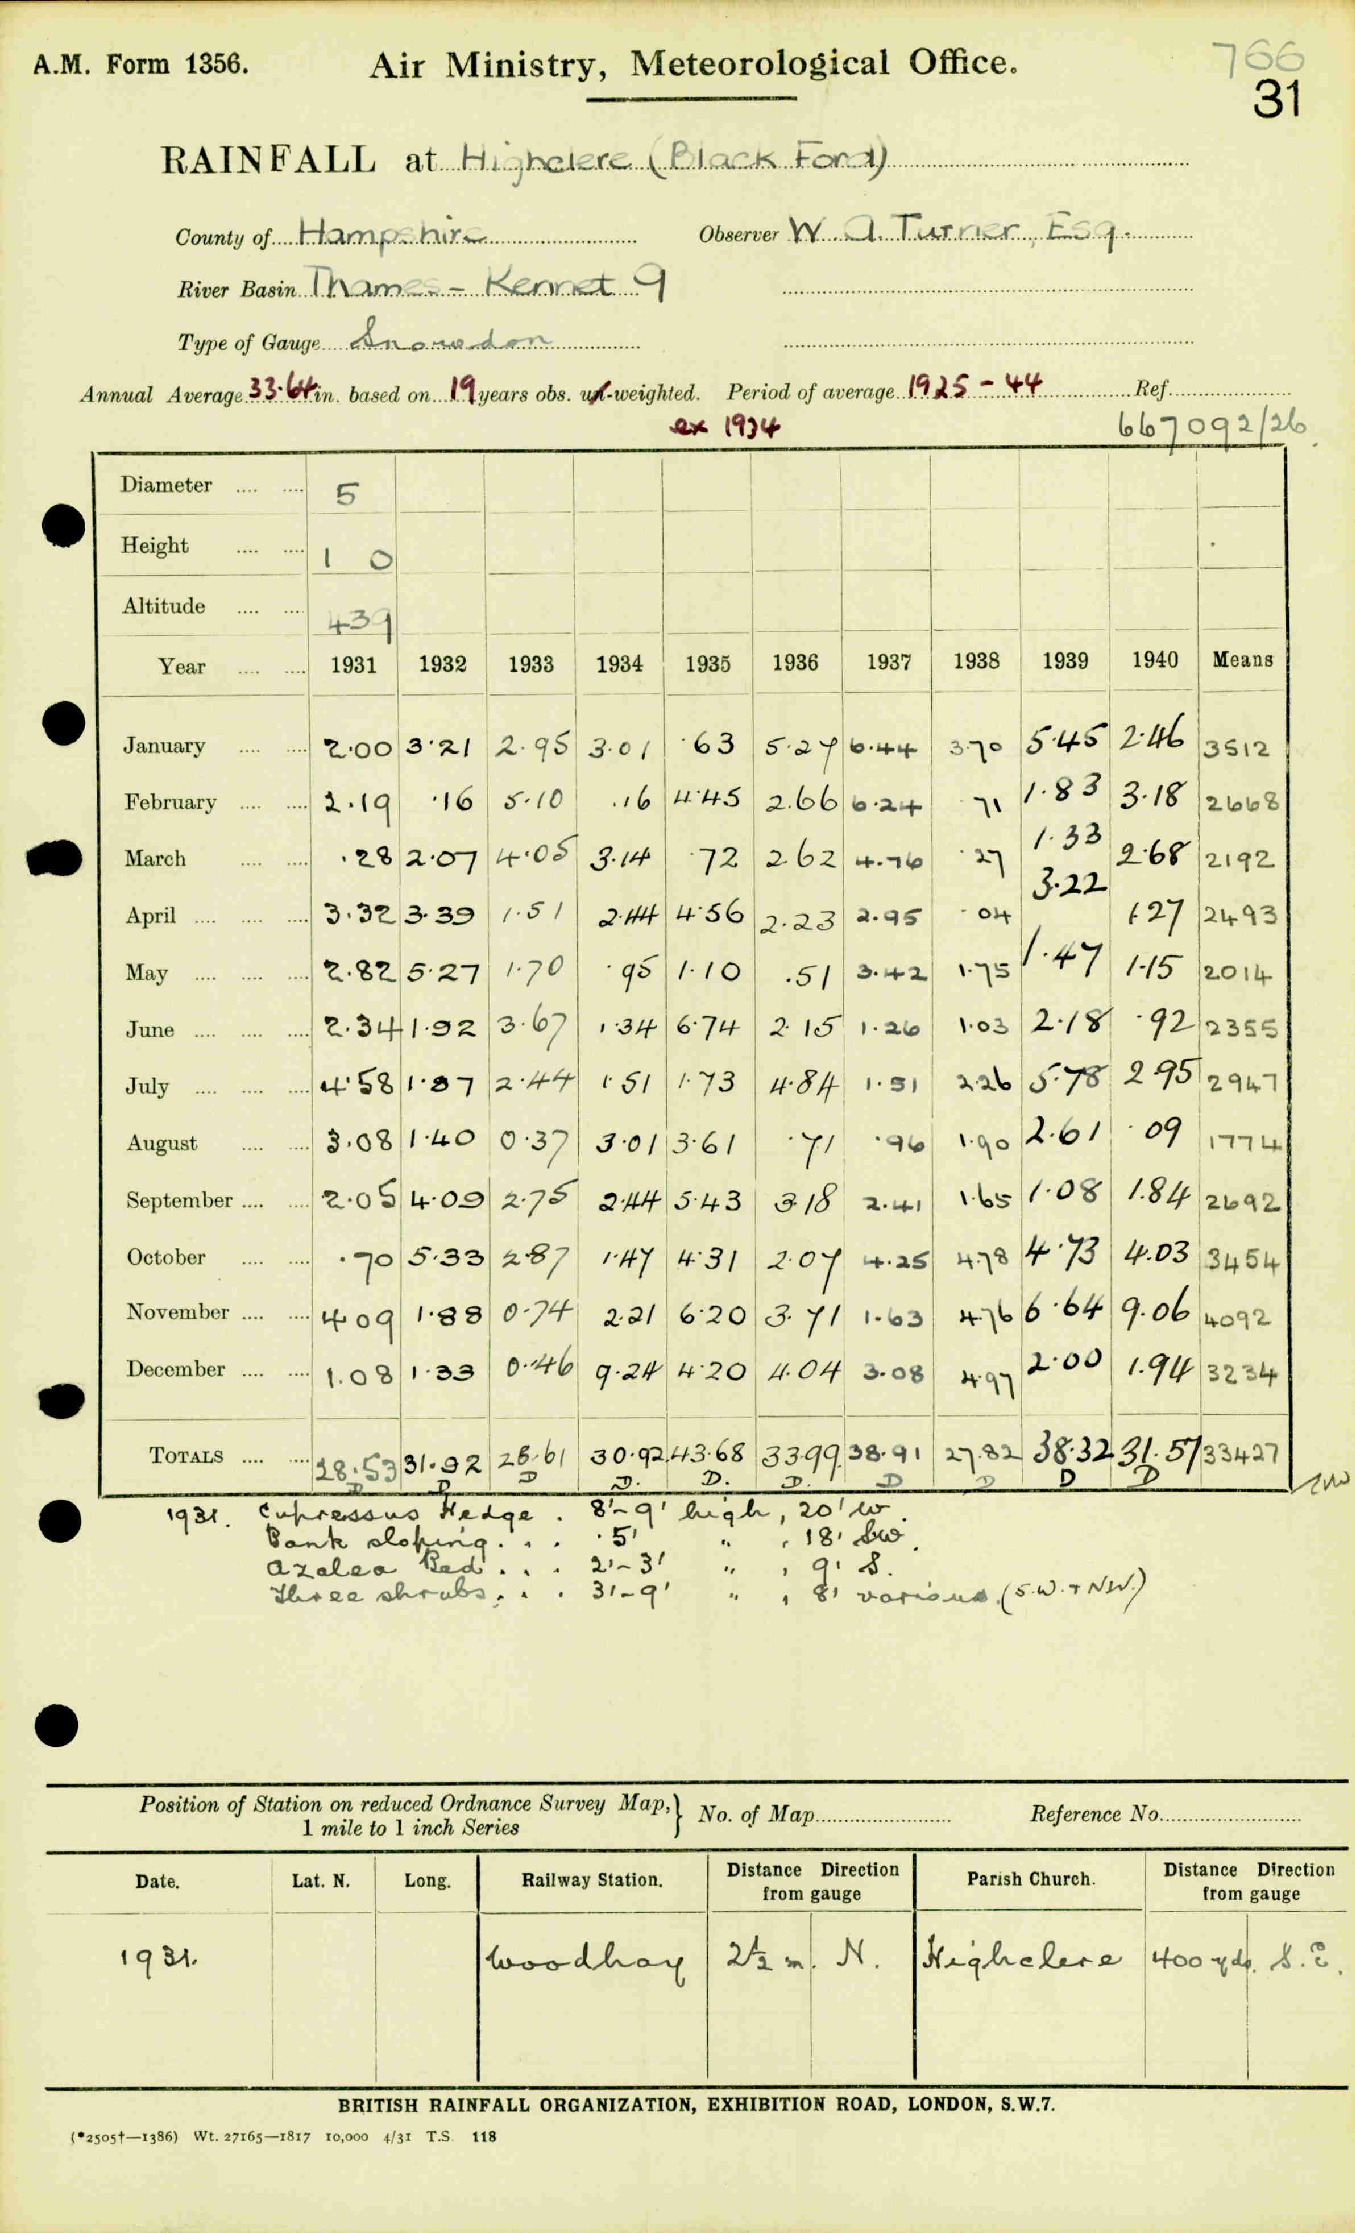 A.M. Form 1356. Air Ministry, Meteorological Office. 766
31
RAINFALL at Highclere (Black Ford)
County of Hampshire Observer W. A. Turner, Esq.
River Basin Thames - Kennet 9
Type of Gauge Snowdon
Annual Average 33.64 in. based on 19 years obs. un-weighted. Period of average 1925-44 Ref.
ex 1934 667092/26
Diameter 5
Height 1 0
Altitude 439
Year 1931 1932 1933 1934 1935 1936 1937 1938 1939 1940 Means
January 2.00 3.21 2.95 3.01 .63 5.27 6.44 3.70 5.45 2.46 3512
February 2.19 .16 5.10 .16 4.45 2.66 6.24 .71 1.83 3.18 2668
March .28 2.07 4.05 3.14 .72 2.62 4.76 .27 1.33 2.68 2192
April 3.32 3.39 1.51 2.44 4.56 2.23 2.95 .04 3.22 1.27 2493
May 2.82 5.27 1.70 .95 1.10 .51 3.42 1.75 1.47 1.15 2014
June 2.34 1.92 3.67 1.34 6.74 2.15 1.26 1.03 2.18 .92 2355
July 4.58 1.87 2.44 1.51 1.73 4.84 1.51 2.26 5.78 2.95 2947
August 3.08 1.40 0.37 3.01 3.61 .71 .96 1.90 2.61 .09 1774
September 2.05 4.09 2.75 2.44 5.43 3.18 2.41 1.65 1.08 1.84 2692
October .70 5.33 2.87 1.47 4.31 2.07 4.25 4.78 4.73 4.03 3454
November 4.09 1.88 0.74 2.21 6.20 3.71 1.63 4.76 6.64 9.06 4092
December 1.08 1.33 0.46 9.24 4.20 4.04 3.08 4.97 2.00 1.94 3234
TOTALS 28.53 31.92 28.61 30.92 43.68 33.99 38.91 27.82 38.32 31.57 33427
D D D D. D. D. D D D D
1931. Cupressus Hedge . 8'-9' high, 20' W.
Bank sloping . . . 5' " , 18' SW.
Azalea Bed . . . 2'-3' " , 9' S.
Three shrubs . . . 3'-9' " , 8' various (S.W. + NW.)
Position of Station on reduced Ordnance Survey Map,} No. of Map Reference No.
1 mile to 1 inch Series
Date. Lat. N. Long. Railway Station. Distance Direction from gauge Parish Church. Distance Direction from gauge
1931. Woodhay 2½ m. N. Highclere 400 yds. S.E.
BRITISH RAINFALL ORGANIZATION, EXHIBITION ROAD, LONDON, S.W.7.
(*2505†—1386) Wt. 27165—1817 10,000 4/31 T.S. 118